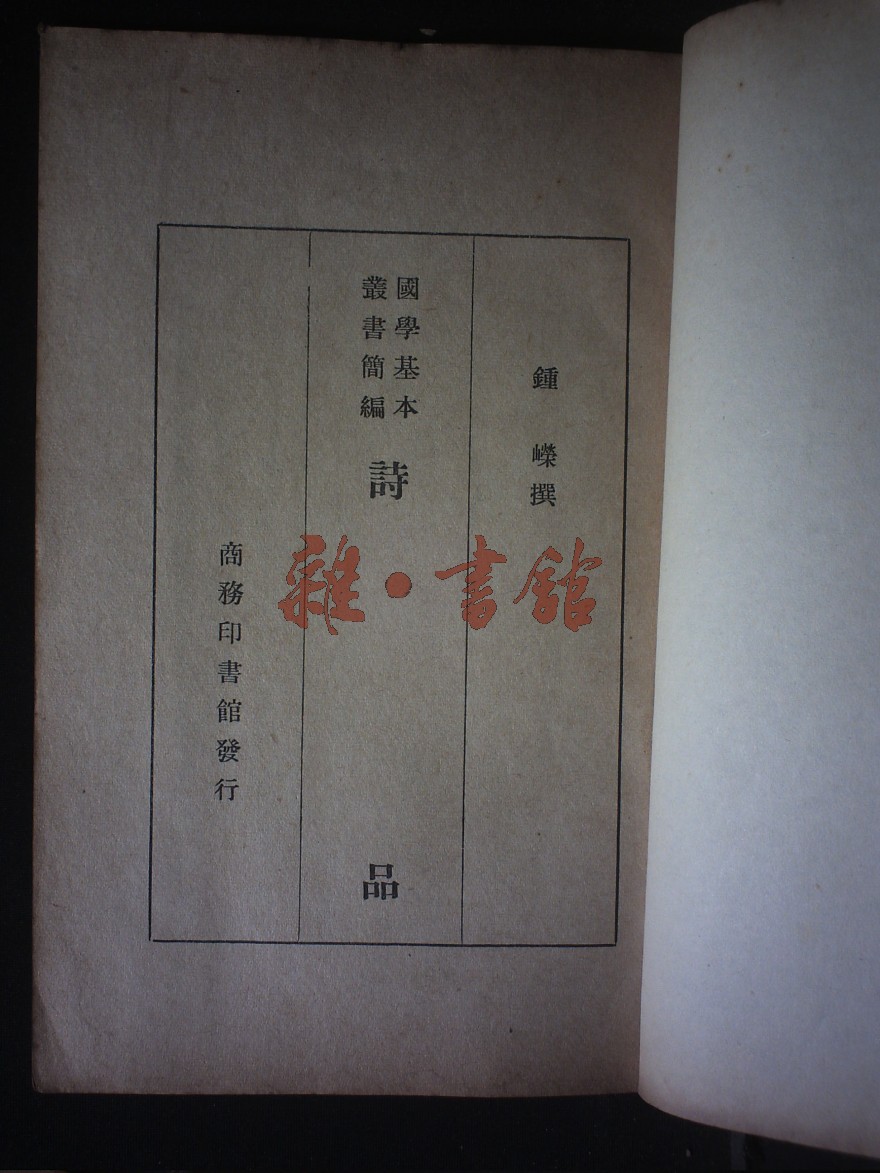 鍾嶸撰
國學基本
叢書簡編
詩品
商務印書館發行
雜·書館